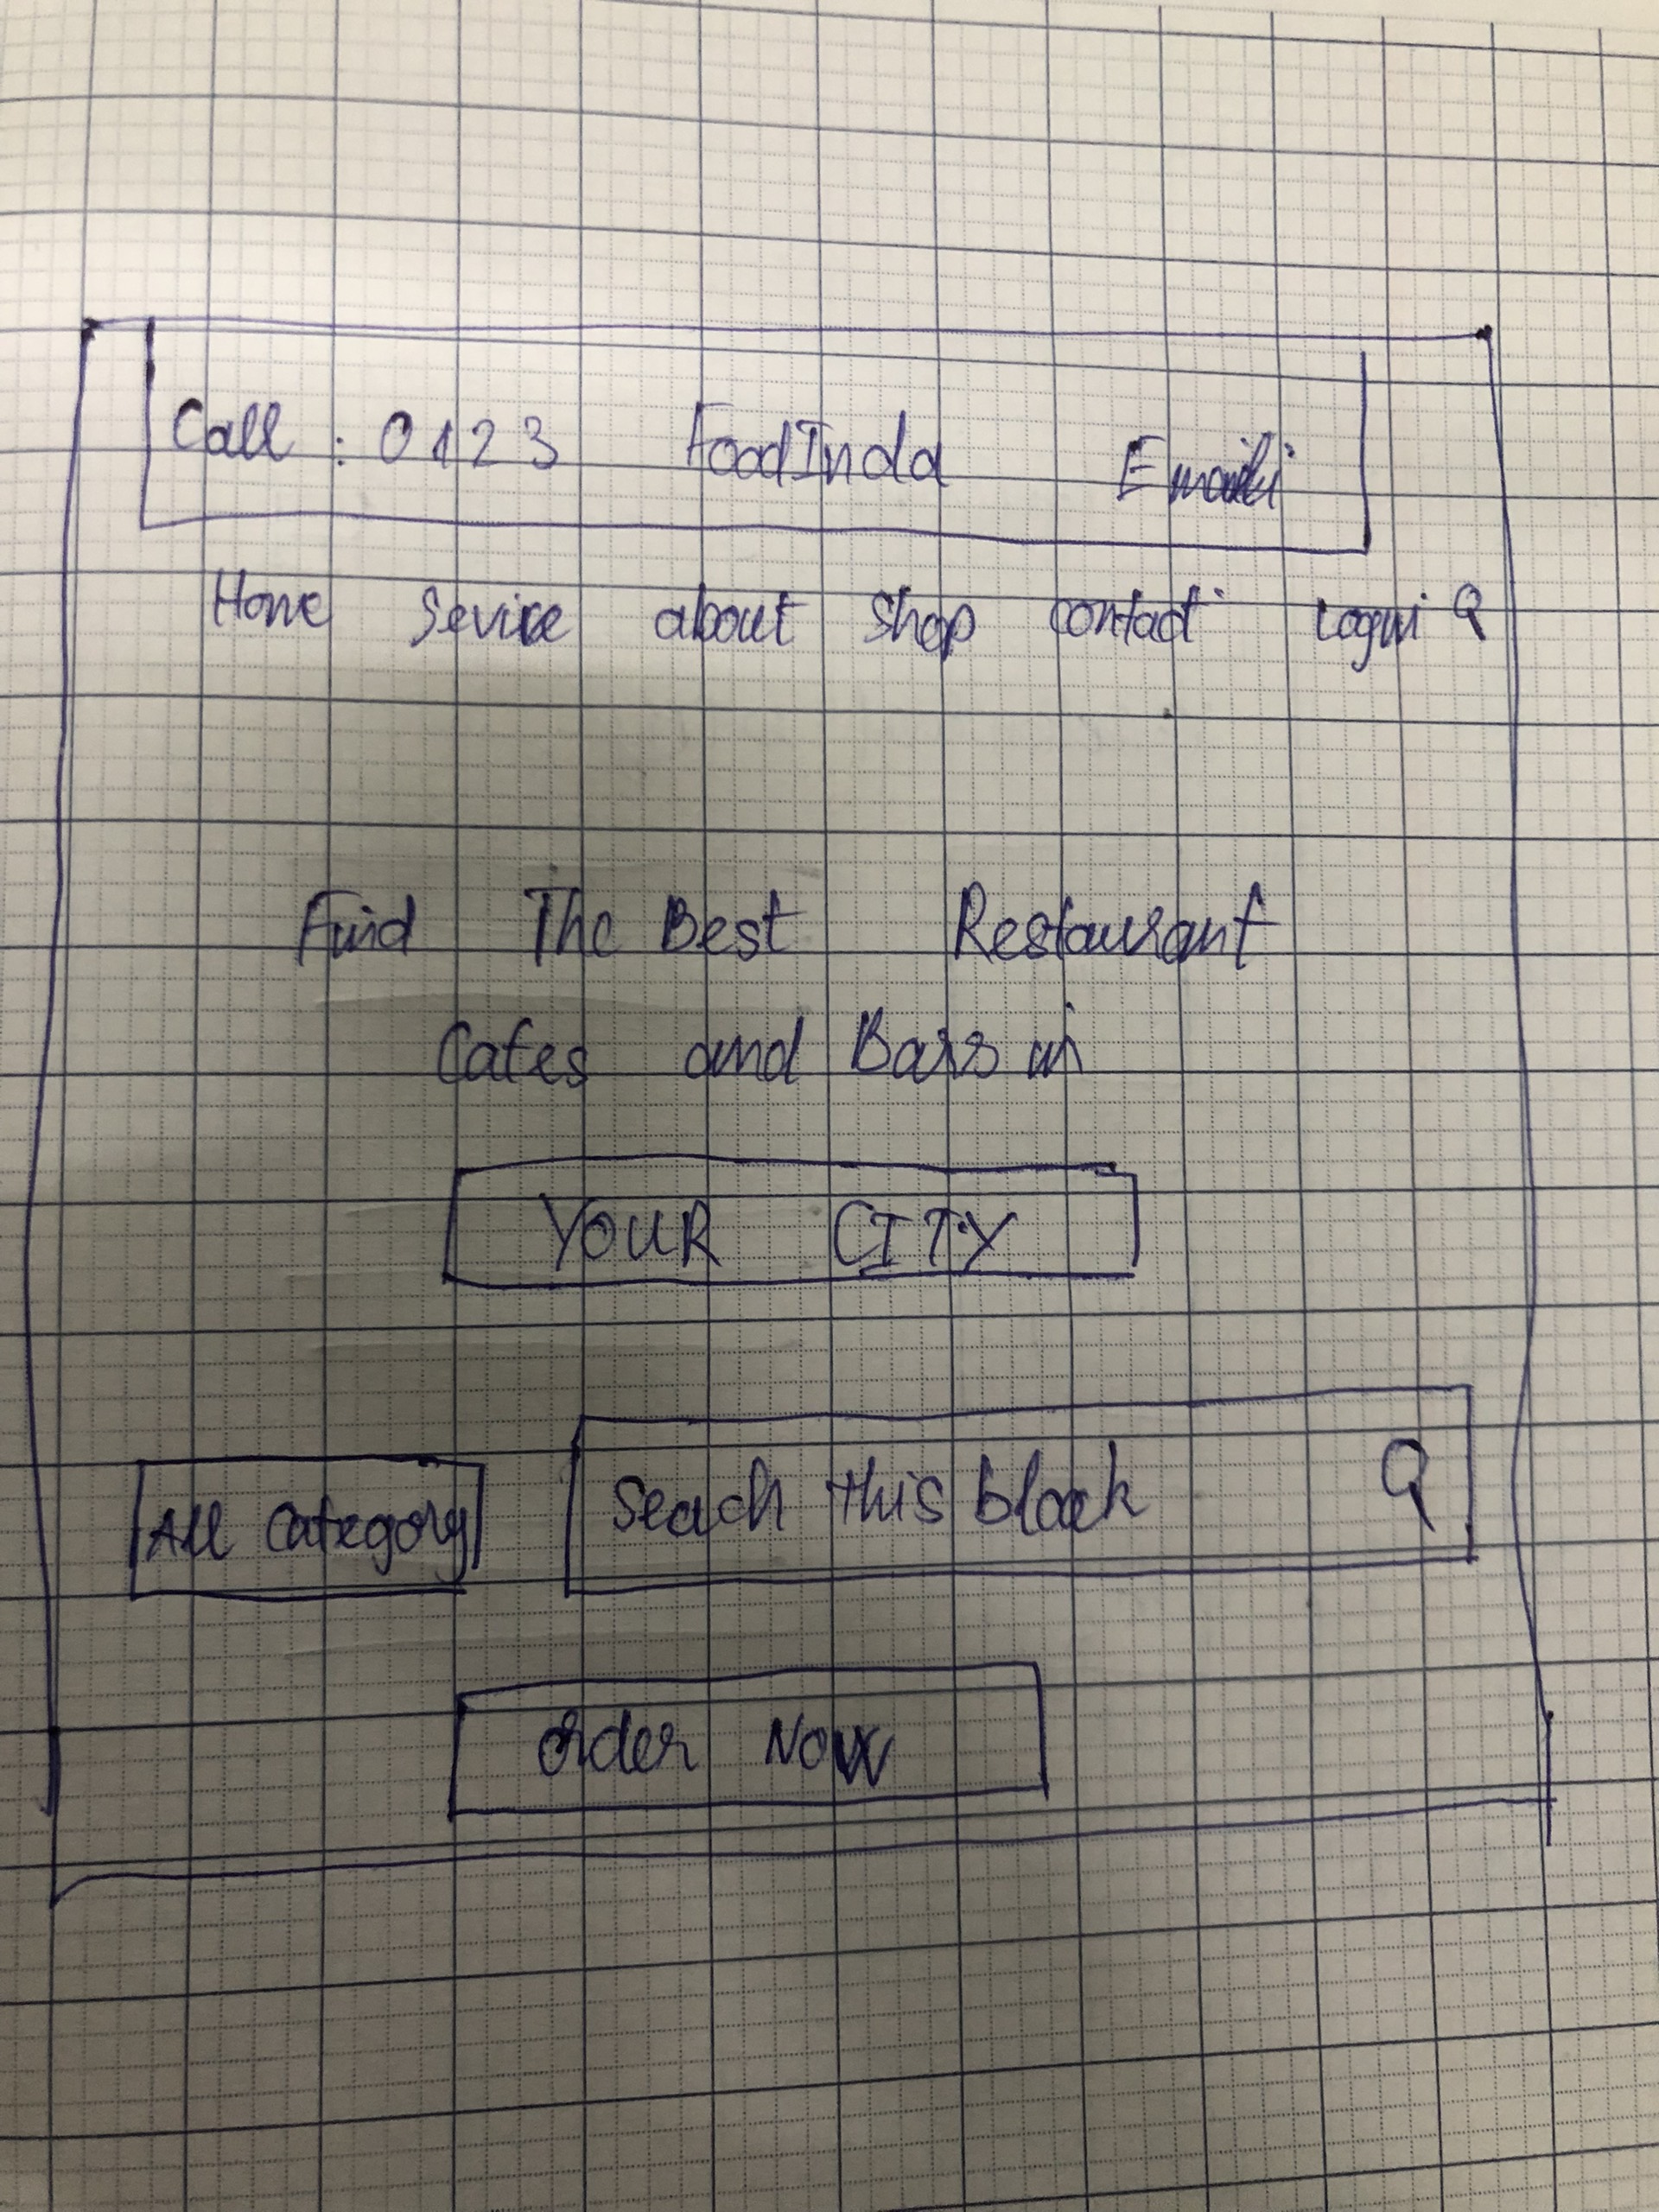 Call : 0123 FoodInda Email
Home Sevice about Shop contact Login
Find The Best Restaurant
Cafes and Bars in
YOUR CITY
All Category Seach this block
Order Now